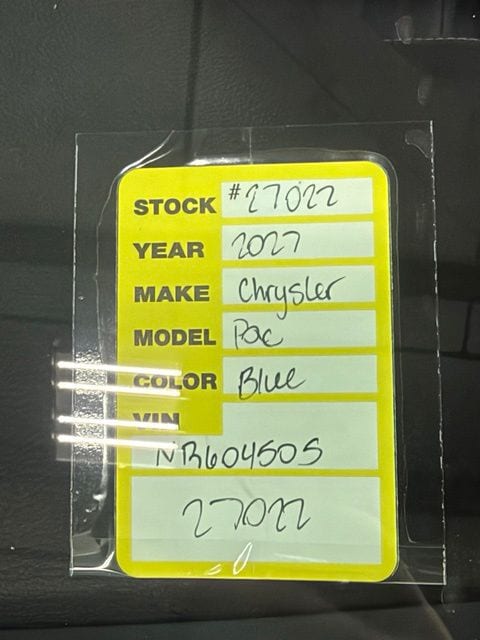 STOCK #27022
YEAR 2027
MAKE Chrysler
MODEL Pac
COLOR Blue
VIN
NR604505
27022